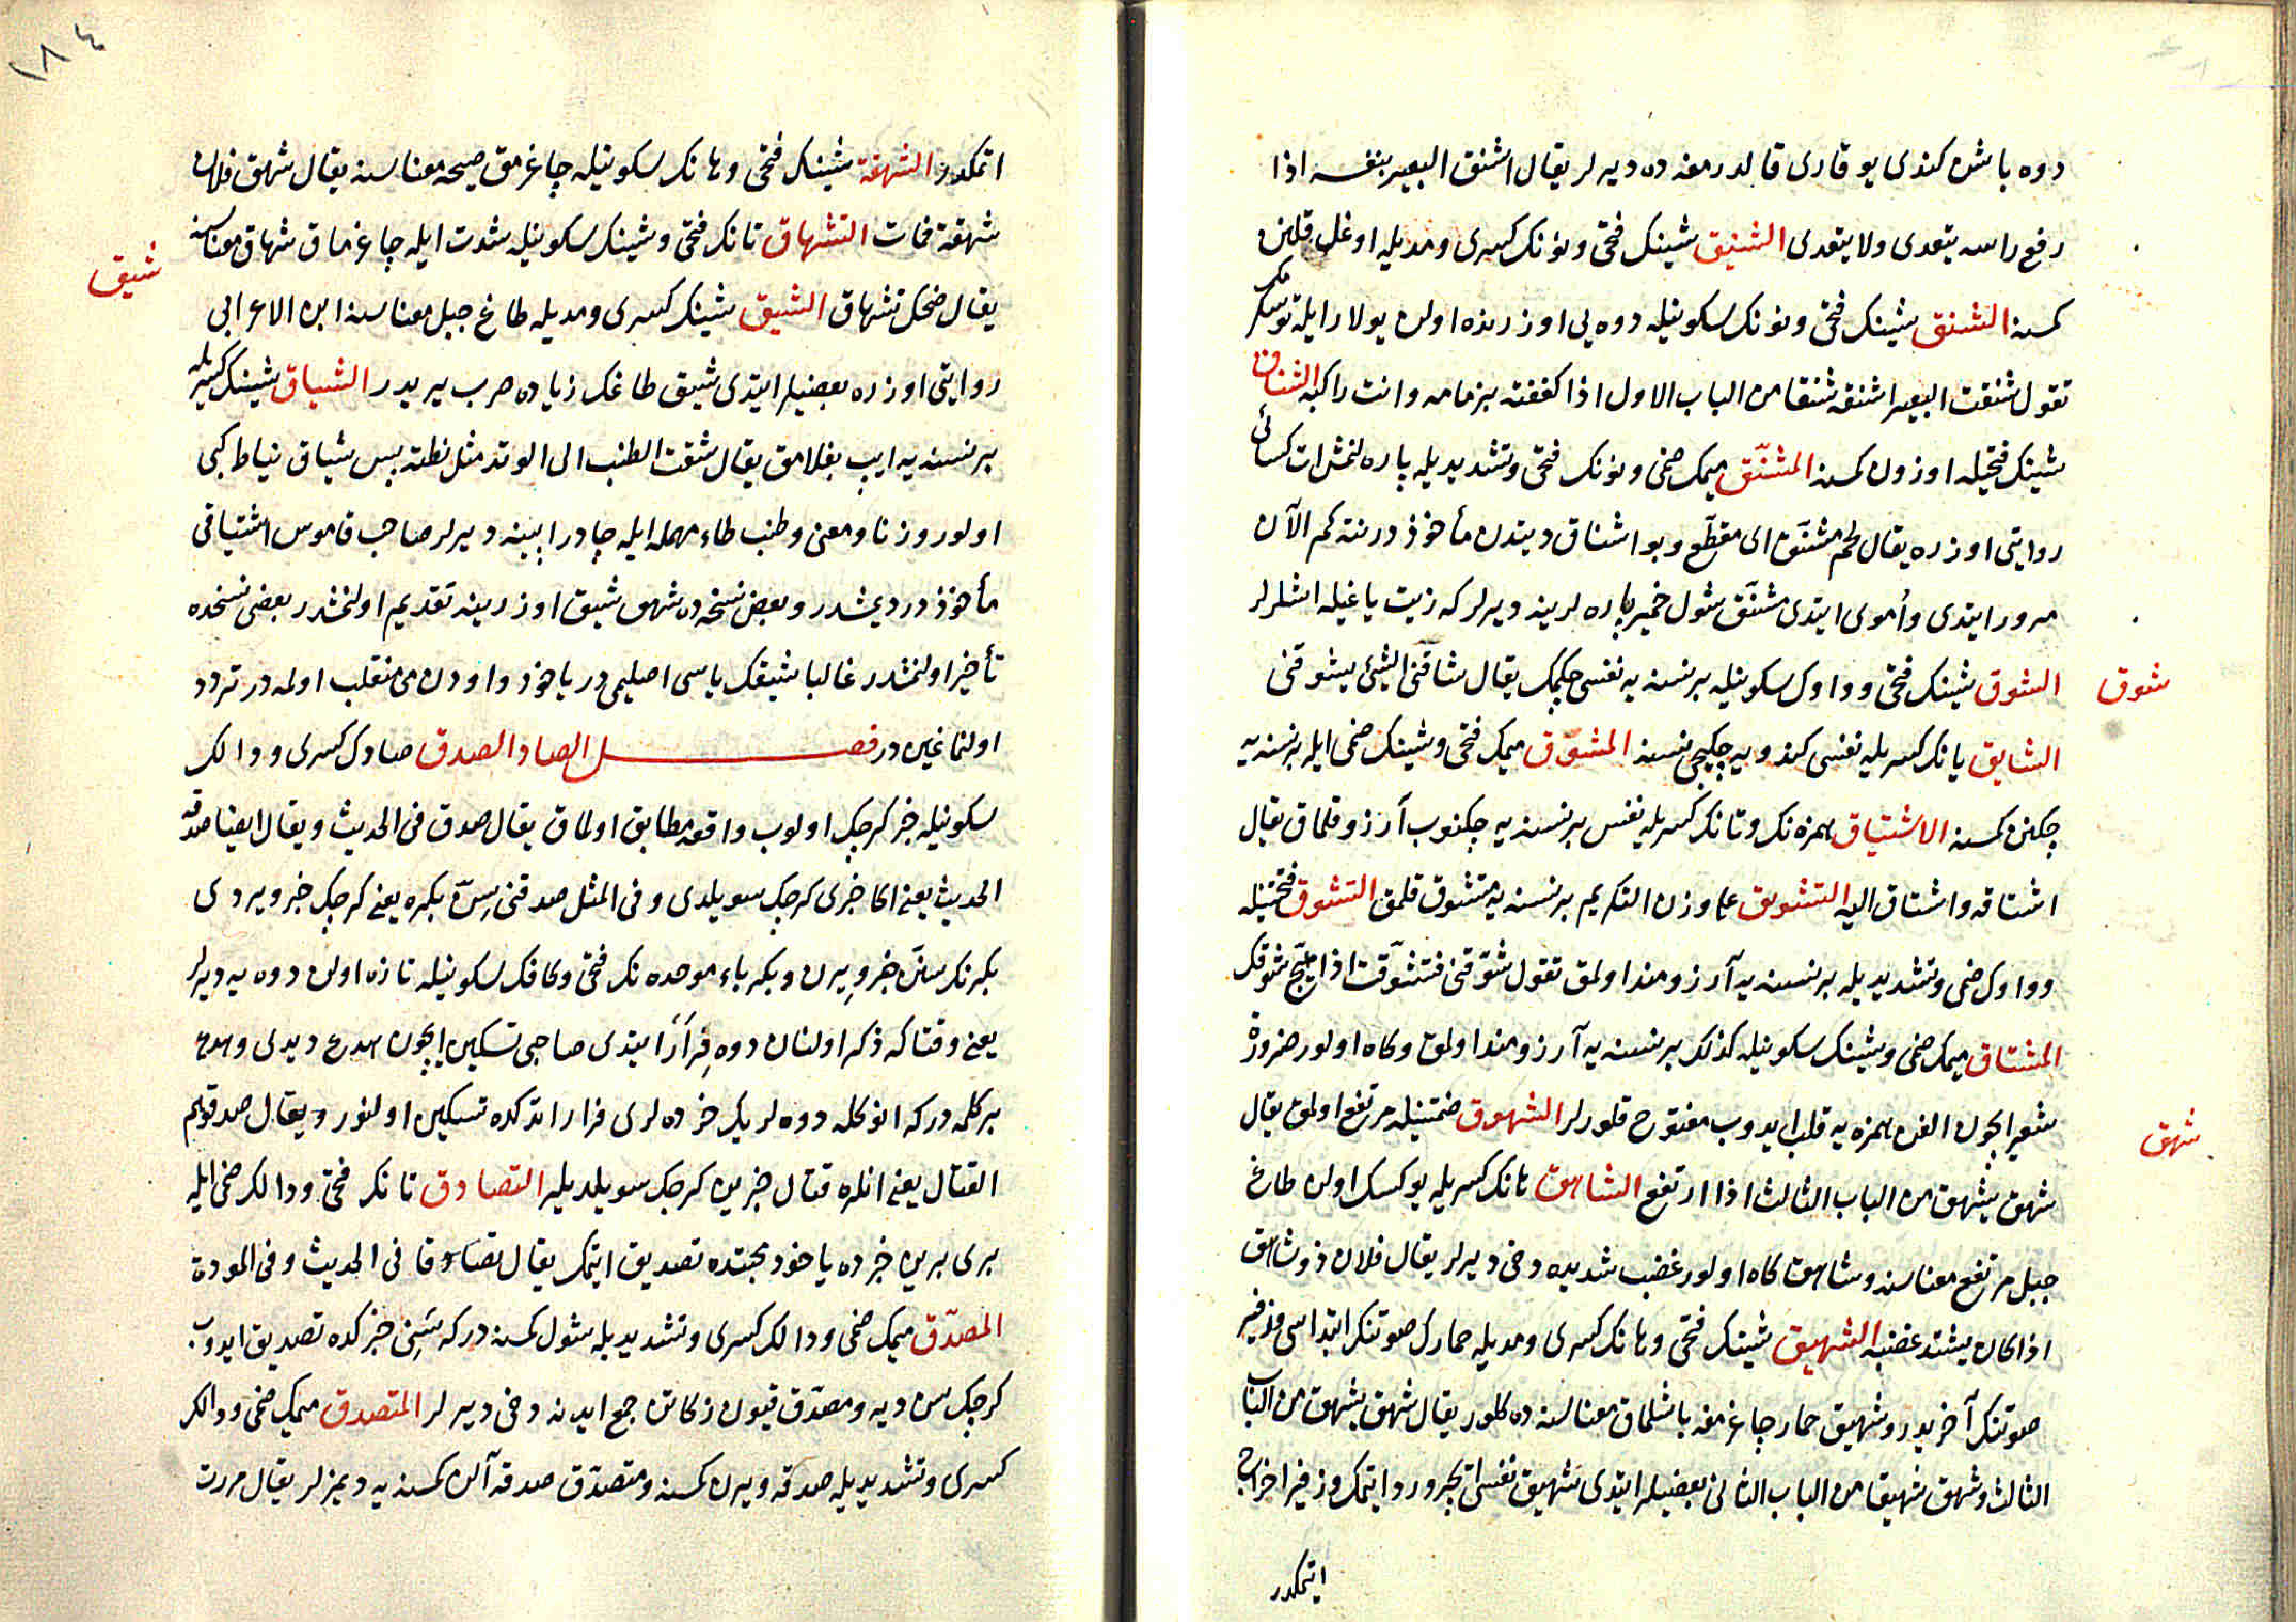 دوه باشن كندى يوقارى قالدرمغه ده ديرلر يقال اشنق البعير بنفسه اذا
رفع راسه يتعدى ولا يتعدى الشنيق شينك فتحى ونونك كسرى ومديله اوغل
كمسنه الشنق شينك فتحى ونونك سكونيله دوه يى اوزرنده اولان يولار ايله
تقول شنقت البعير اشنقه شنقا من الباب الاول اذا كففته بزمامه وانت راكبه الشناق
شينك فتحيله اوزون كمسنه المشنّق ميمك ضمى ونونك فتحى وتشديديله پاره لنمش ات كسائى
روايتى اوزره يقال لحم مشنّق اى مقطّع وبو اشناق ديتدن مأخوذدر نته كم الآن
مرور ايتدى وأموى ايتدى مشنّق شول خمير پاره لرينه ديرلر كه زيت ياغيله اشلرلر
شوق
الشوق شينك فتحى وواوك سكونيله بر نسنه يه نفسى چكمك يقال شاقنى الشئ يشوقنى
الشايق يانك كسريله نفسى كندويه چكيجى نسنه المشوق ميمك فتحى وشينك ضمى ايله بر نسنه يه
چكلن كمسنه الاشتياق همزه نك وتانك كسريله نفس بر نسنه يه چكنوب آرزو قلماق يقال
اشتاقه واشتاق اليه التشويق على وزن التكريم بر نسنه يه متشوق قلمق التشوق فتحتيله
وواوك ضمى وتشديديله بر نسنه يه آرزومند اولمق تقول شوّقنى فتشوّقت اذا هيّج شوقك
المشتاق ميمك ضمى وشينك سكونيله كذلك بر نسنه يه آرزومند اولمق وكاه اولور ضرورة
شعر ايچون الفن همزه يه قلب ايدوب مفتوح قلورلر الشهوق ضمتيله مرتفع اولمق يقال
شهق
شهق يشهق من الباب الثالث اذا ارتفع الشاهق هانك كسريله يوكسك اولن طاغ
جبل مرتفع معناسنه وشاهق كاه اولور غضب شديده دخى ديرلر يقال فلان ذو شاهق
اذا كان يشتد غضبه الشهيق شينك فتحى وهانك كسرى ومديله حمارك صوتنك ابتداسى وزفير
صوتنك آخريدر وشهيق حمار چاغرمغه باشلماق معناسنه ده كلور يقال شهق يشهق من الباب
الثالث وشهق شهيقا من الباب الثانى بعضيلر ايتدى شهيق نفسى ايچرو رد ايتمك وزفير اخراج
ايتمكدر
١٨٤
اتمكدر الشهقة شينك فتحى وهانك سكونيله چاغرمق صيحه معناسنه يقال شهق فلان
شهقة فمات التشهاق تانك فتحى وشينك سكونيله شدت ايله چاغرماق شهاق معناسنه
شيق
يقال ضحك تشهاق الشيق شينك كسرى ومديله طاغ جبل معناسنه ابن الاعرابى
روايتى اوزره بعضيلر ايتدى شيق طاغك زياده صرب يريدر الشياق شينك كسريله
بر نسنه يه ايپ بغلامق يقال شقت الطنب الى الوتد مثل نطته پس شياق نياط كبى
اولور وزنا ومعنى وطنب طاء مهمله ايله چادر ايپنه ديرلر صاحب قاموس اشتياقى
مأخوذدر ديمشدر وبعض نسخه ده شهق شيق اوزرينه تقديم اولنمشدر بعضى نسخه ده
تأخير اولنمشدر غالبا شيقك ياسى اصليمى در ياخود واودن مى منقلب اولمه در تردد
اولنماغين در فصل الصاد الصدق صادك كسرى ودالك
سكونيله خبر كرچك اولوب واقعه مطابق اولماق يقال صدق فى الحديث ويقال ايضا صدقه
الحديث يعنى اكا خبرى كرچك سويلدى وفى المثل صدقنى سنّ بكره يعنى كرچك خبر ويردى
بكرنك سنّ خبر ويرن وبكر باء موحده نك فتحى وكافك سكونيله تازه اولان دوه يه ديرلر
يعنى وقتا كه ذكر اولنان دوه فِراراً ايتدى صاحبى تسكين ايچون هدع ديدى وهدع
بر كلمه در كه انوكله دوه لريك خرده لرى فرار ايتدكده تسكين اولنور ويقال صدقوهم
القتال يعنى انلره قتال خبرين كرچك سويلديلر التصادق تانك فتحى ودالك ضمى ايله
برى برين خبرده ياخود محبتده تصديق ايتمك يقال تصادقا فى الحديث وفى المودة
المصدّق ميمك ضمى ودالك كسرى وتشديديله شول كمسنه در كه سَنى خبركده تصديق ايدوب
كرچك سن ديه ومصدّق قيون زكاتن جمع ايدنه دخى ديرلر المتصدق ميمك ضمى ودالك
كسرى وتشديديله صدقه ويرن كمسنه ومتصدّق صدقه آلن كمسنه يه ديمزلر يقال مررت